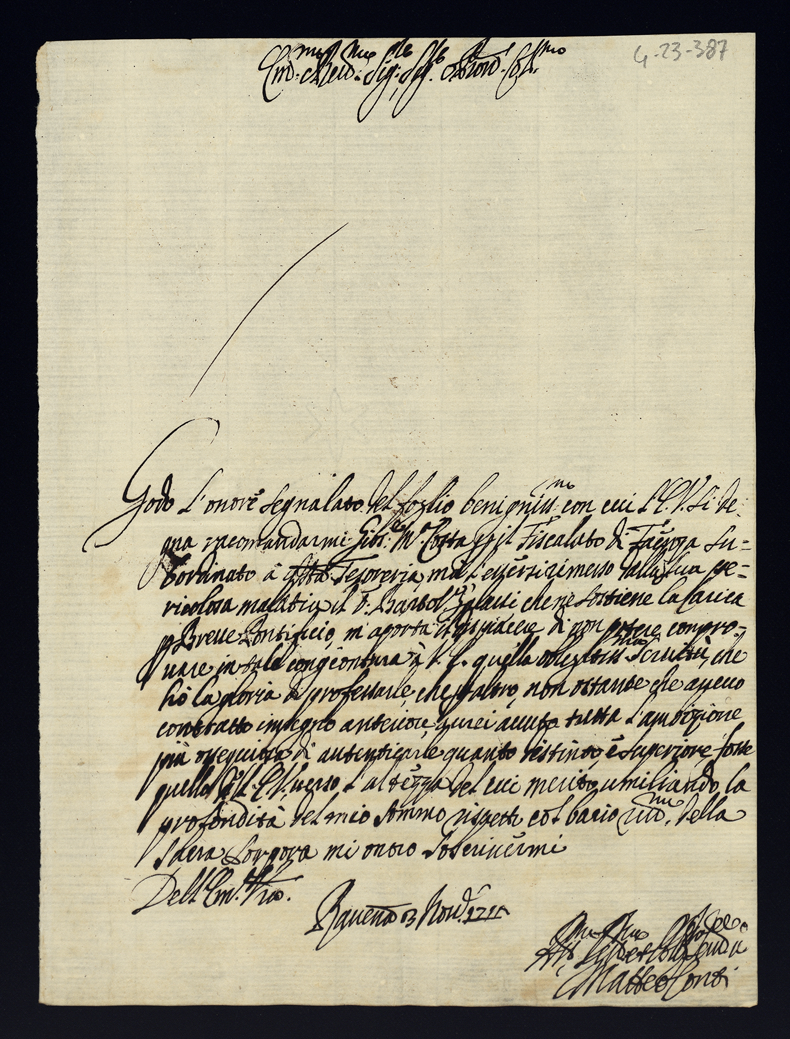 Em.mo e Reu.mo Sig.re Sig.re e Pron. Col.mo
4-23-387
Godo l'onore segnalato del foglio benignis.mo con cui l'E.V. si de-
gna racomandarmi Costa p il Fiscalato di Faenza su-
bordinato à Tesoreria, mà l'essersi rimesso dalla sua pe-
ricolosa malattia il S. Bartol. che ne sostiene la Carica
p Breve Pontificio, mi aporta il dispiacere di non potere compro-
uare in tale congiontura à V.E. quella seruitù, che
hò la gloria di professarle, che p altro, non ostante che auessi
contratto impegno anteriore, aurei auuto tutta l'ambizione
più ossequiosa di autenticarle quanto distinto e superiore fosse
quello p l'E.V. uerso l'altezza del cui merito, umiliando la
profondità del mio Ammo rispetti col bacio della
Sacra Porpora mi onoro soscriuermi
Dell'Em. Vra.
Rauena 13 Nou. 1711
Matteo Conti